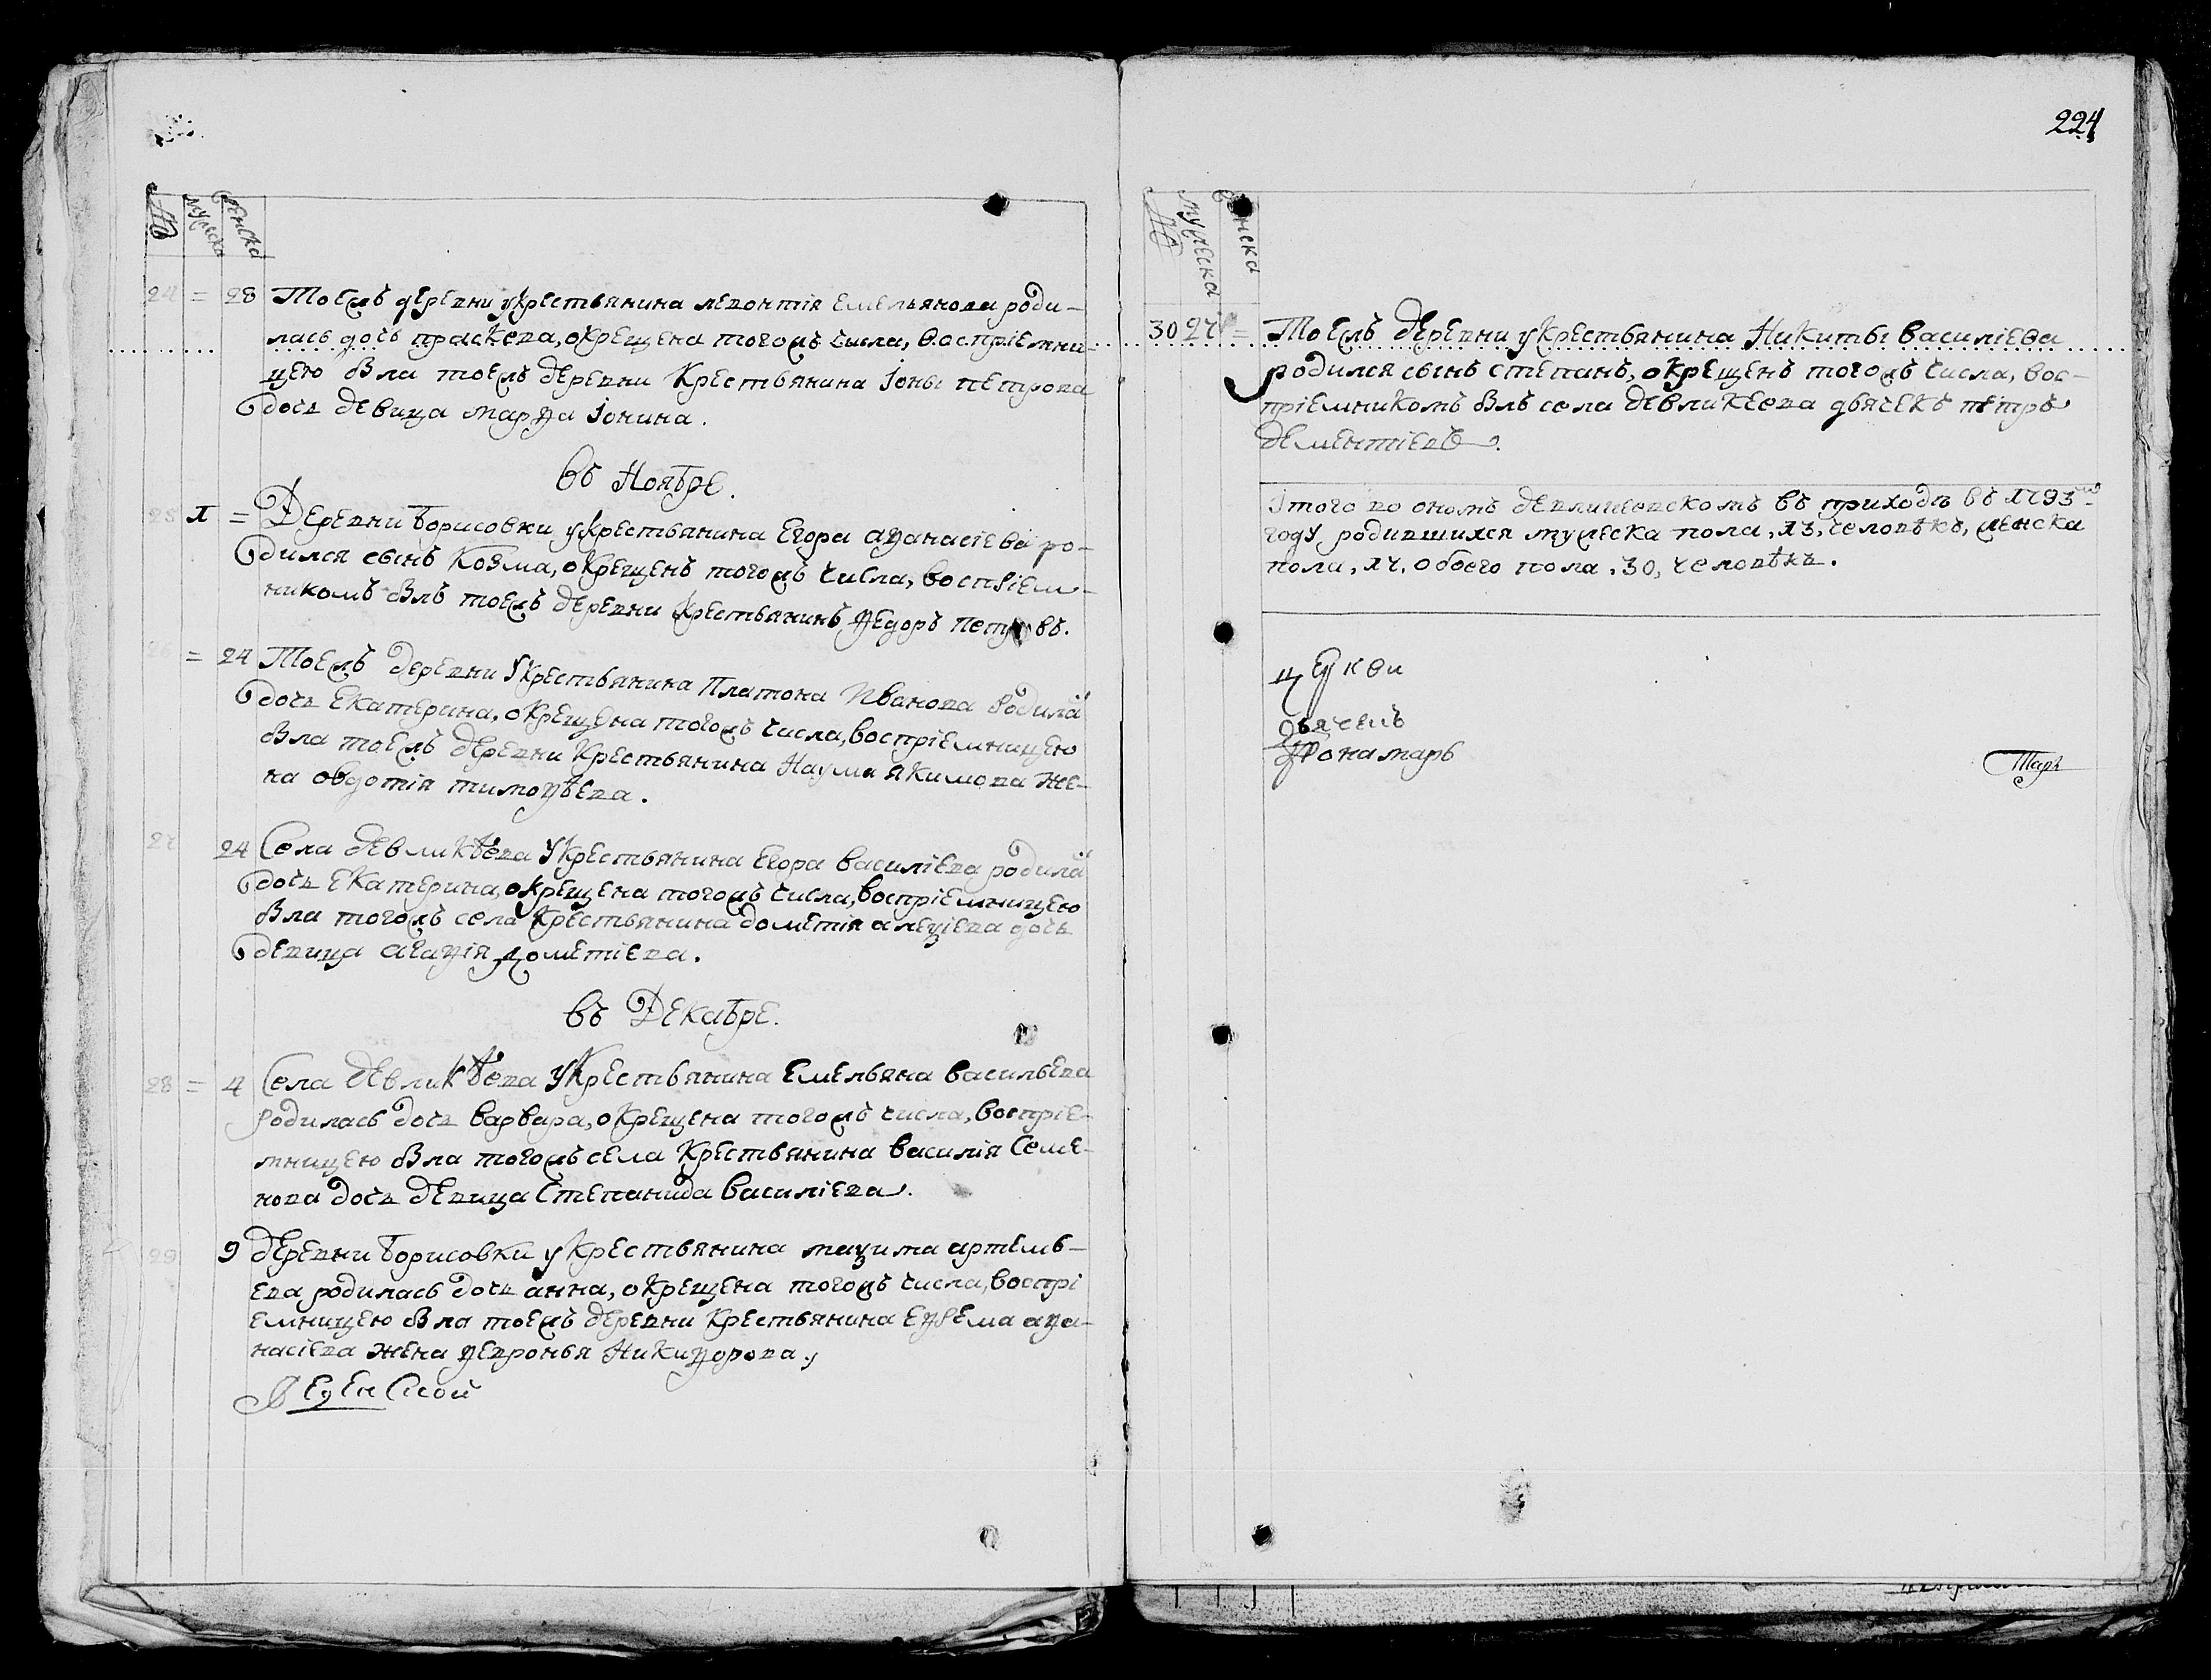 № мужеска женска
24 = 28 Тоежъ деревни у крестьянина леВонтія Емельянова роди-
лась дочь праскева, окрещена тогожъ числа, воспріемни-
цею Была тоежъ деревни Крестьянина Іоны петрова
дочь девица марфа Іонина.
въ Ноябре.
25 1 = Деревни Борисовки у крестьянина Егора афанасіева ро-
дился сынъ Козма, окрещенъ тогожъ числа, воспріем-
никомъ Былъ тоежъ деревни крестьянинъ Федоръ Петровъ.
26 = 24 Тоежъ деревни у Крестьянина Платона Иванова Родила
дочь Екатерина, окрещена тогожъ числа, воспріемницею
Была тоежъ деревни Крестьянина Наума якимова же-
на овдотія тимофѣева.
27 24 Села девликѣева у Крестьянина Егора василіева родила
дочь Екатерина, окрещена тогожъ числа, воспріемницею
Была тогожъ села Крестьянина дометія алеѯіева дочь
девица агафія дометіева.
въ Декабре.
28 = 4 Села девликѣева у Крестьянина Емельяна васильева
Родилась дочь варвара, окрещена тогожъ числа, воспріе-
мницею Была тогожъ села Крестьянина василія Семе-
нова дочь девица Степанида василіева.
29 9 деревни Борисовки у Крестьянина маѯима артемь-
ева родилась дочь анна, окрещена тогожъ числа, воспрі
емницею Была тоежъ деревни Крестьянина Ефрема афа-
насіева жена февронья Никифорова.
224
№ мужеска женска
30 27 = Тоежъ деревни у Крестьянина Никиты василіева
родился сынъ степанъ, окрещенъ тогожъ числа, вос-
пріемникомъ Былъ села девликеева дьячекъ петръ
дементіевъ.
Итого во ономъ девликеевскомъ въ приходѣ въ 1793м
году родившихся мужеска пола, 13, человѣкъ, женска
пола, 17, обоего пола, 30, человѣкъ.
церкви
дьячекъ
Пономарь